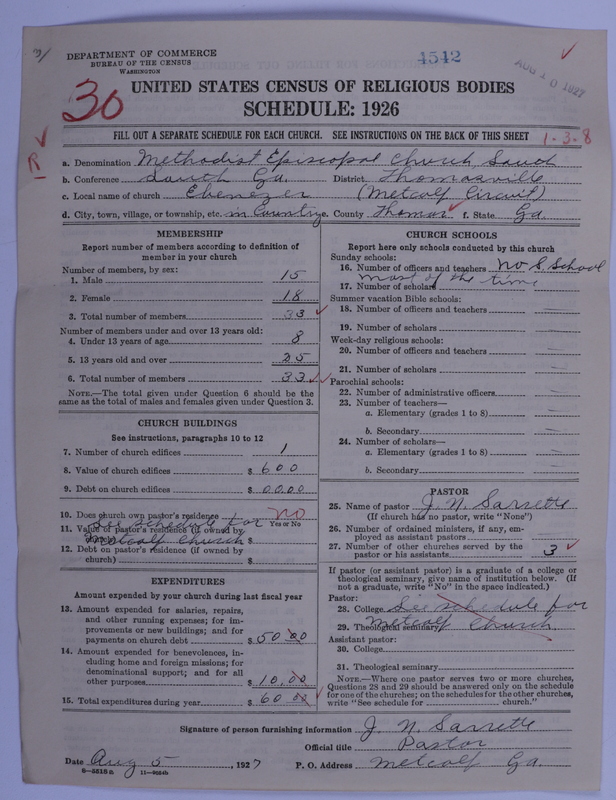 DEPARTMENT OF COMMERCE
BUREAU OF THE CENSUS
WASHINGTON
4542
AUG 10 1927
30
UNITED STATES CENSUS OF RELIGIOUS BODIES
SCHEDULE: 1926
FILL OUT A SEPARATE SCHEDULE FOR EACH CHURCH. SEE INSTRUCTIONS ON THE BACK OF THIS SHEET
1-3-8
R
a. Denomination Methodist Episcopal Church South
b. Conference South Ga. District Thomasville
c. Local name of church Ebenezer (Metcalf Circuit)
d. City, town, village, or township, etc. in Country e. County Thomas f. State Ga
MEMBERSHIP
Report number of members according to definition of
member in your church
Number of members, by sex:
1. Male 15
2. Female 18
3. Total number of members 33
Number of members under and over 13 years old:
4. Under 13 years of age 8
5. 13 years old and over 25
6. Total number of members 33
NOTE.—The total given under Question 6 should be the
same as the total of males and females given under Question 3.
CHURCH BUILDINGS
See instructions, paragraphs 10 to 12
7. Number of church edifices 1
8. Value of church edifices $ 600
9. Debt on church edifices $ 00.00
10. Does church own pastor's residence no
Yes or No
See schedule for
11. Value of pastor's residence (if owned by
church) $
Metcalf Church
12. Debt on pastor's residence (if owned by
church) $
EXPENDITURES
Amount expended by your church during last fiscal year
13. Amount expended for salaries, repairs,
and other running expenses; for im-
provements or new buildings; and for
payments on church debt $ 50 00
14. Amount expended for benevolences, in-
cluding home and foreign missions; for
denominational support; and for all
other purposes $ 10.00
15. Total expenditures during year $ 60 00
CHURCH SCHOOLS
Report here only schools conducted by this church
Sunday schools:
16. Number of officers and teachers No S School
most of the time
17. Number of scholars
Summer vacation Bible schools:
18. Number of officers and teachers
19. Number of scholars
Week-day religious schools:
20. Number of officers and teachers
21. Number of scholars
Parochial schools:
22. Number of administrative officers
23. Number of teachers—
a. Elementary (grades 1 to 8)
b. Secondary
24. Number of scholars—
a. Elementary (grades 1 to 8)
b. Secondary
PASTOR
25. Name of pastor J. N. Sarrette
(If church has no pastor, write "None")
26. Number of ordained ministers, if any, em-
ployed as assistant pastors
27. Number of other churches served by the
pastor or his assistants 3
If pastor (or assistant pastor) is a graduate of a college or
theological seminary, give name of institution below. (If
not a graduate, write "No" in the space indicated.)
Pastor:
28. College See schedule for
29. Theological seminary Metcalf Church
Assistant pastor:
30. College
31. Theological seminary
NOTE.—Where one pastor serves two or more churches,
Questions 28 and 29 should be answered only on the schedule
for one of the churches; on the schedules for the other churches,
write "See schedule for church."
Signature of person furnishing information J. N. Sarrette
Official title Pastor
Date Aug 5, 1927 P. O. Address Metcalf Ga.